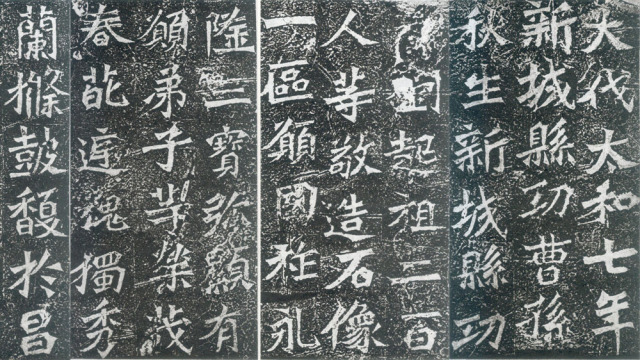 大代太和七年
新城縣功曹孫
秋生新城縣功
起祖二百
人等敬造石像
一區願國祚永
隆三寶弥顯有
願弟子等榮茂
春葩庭槐獨秀
蘭條鼓馥於昌